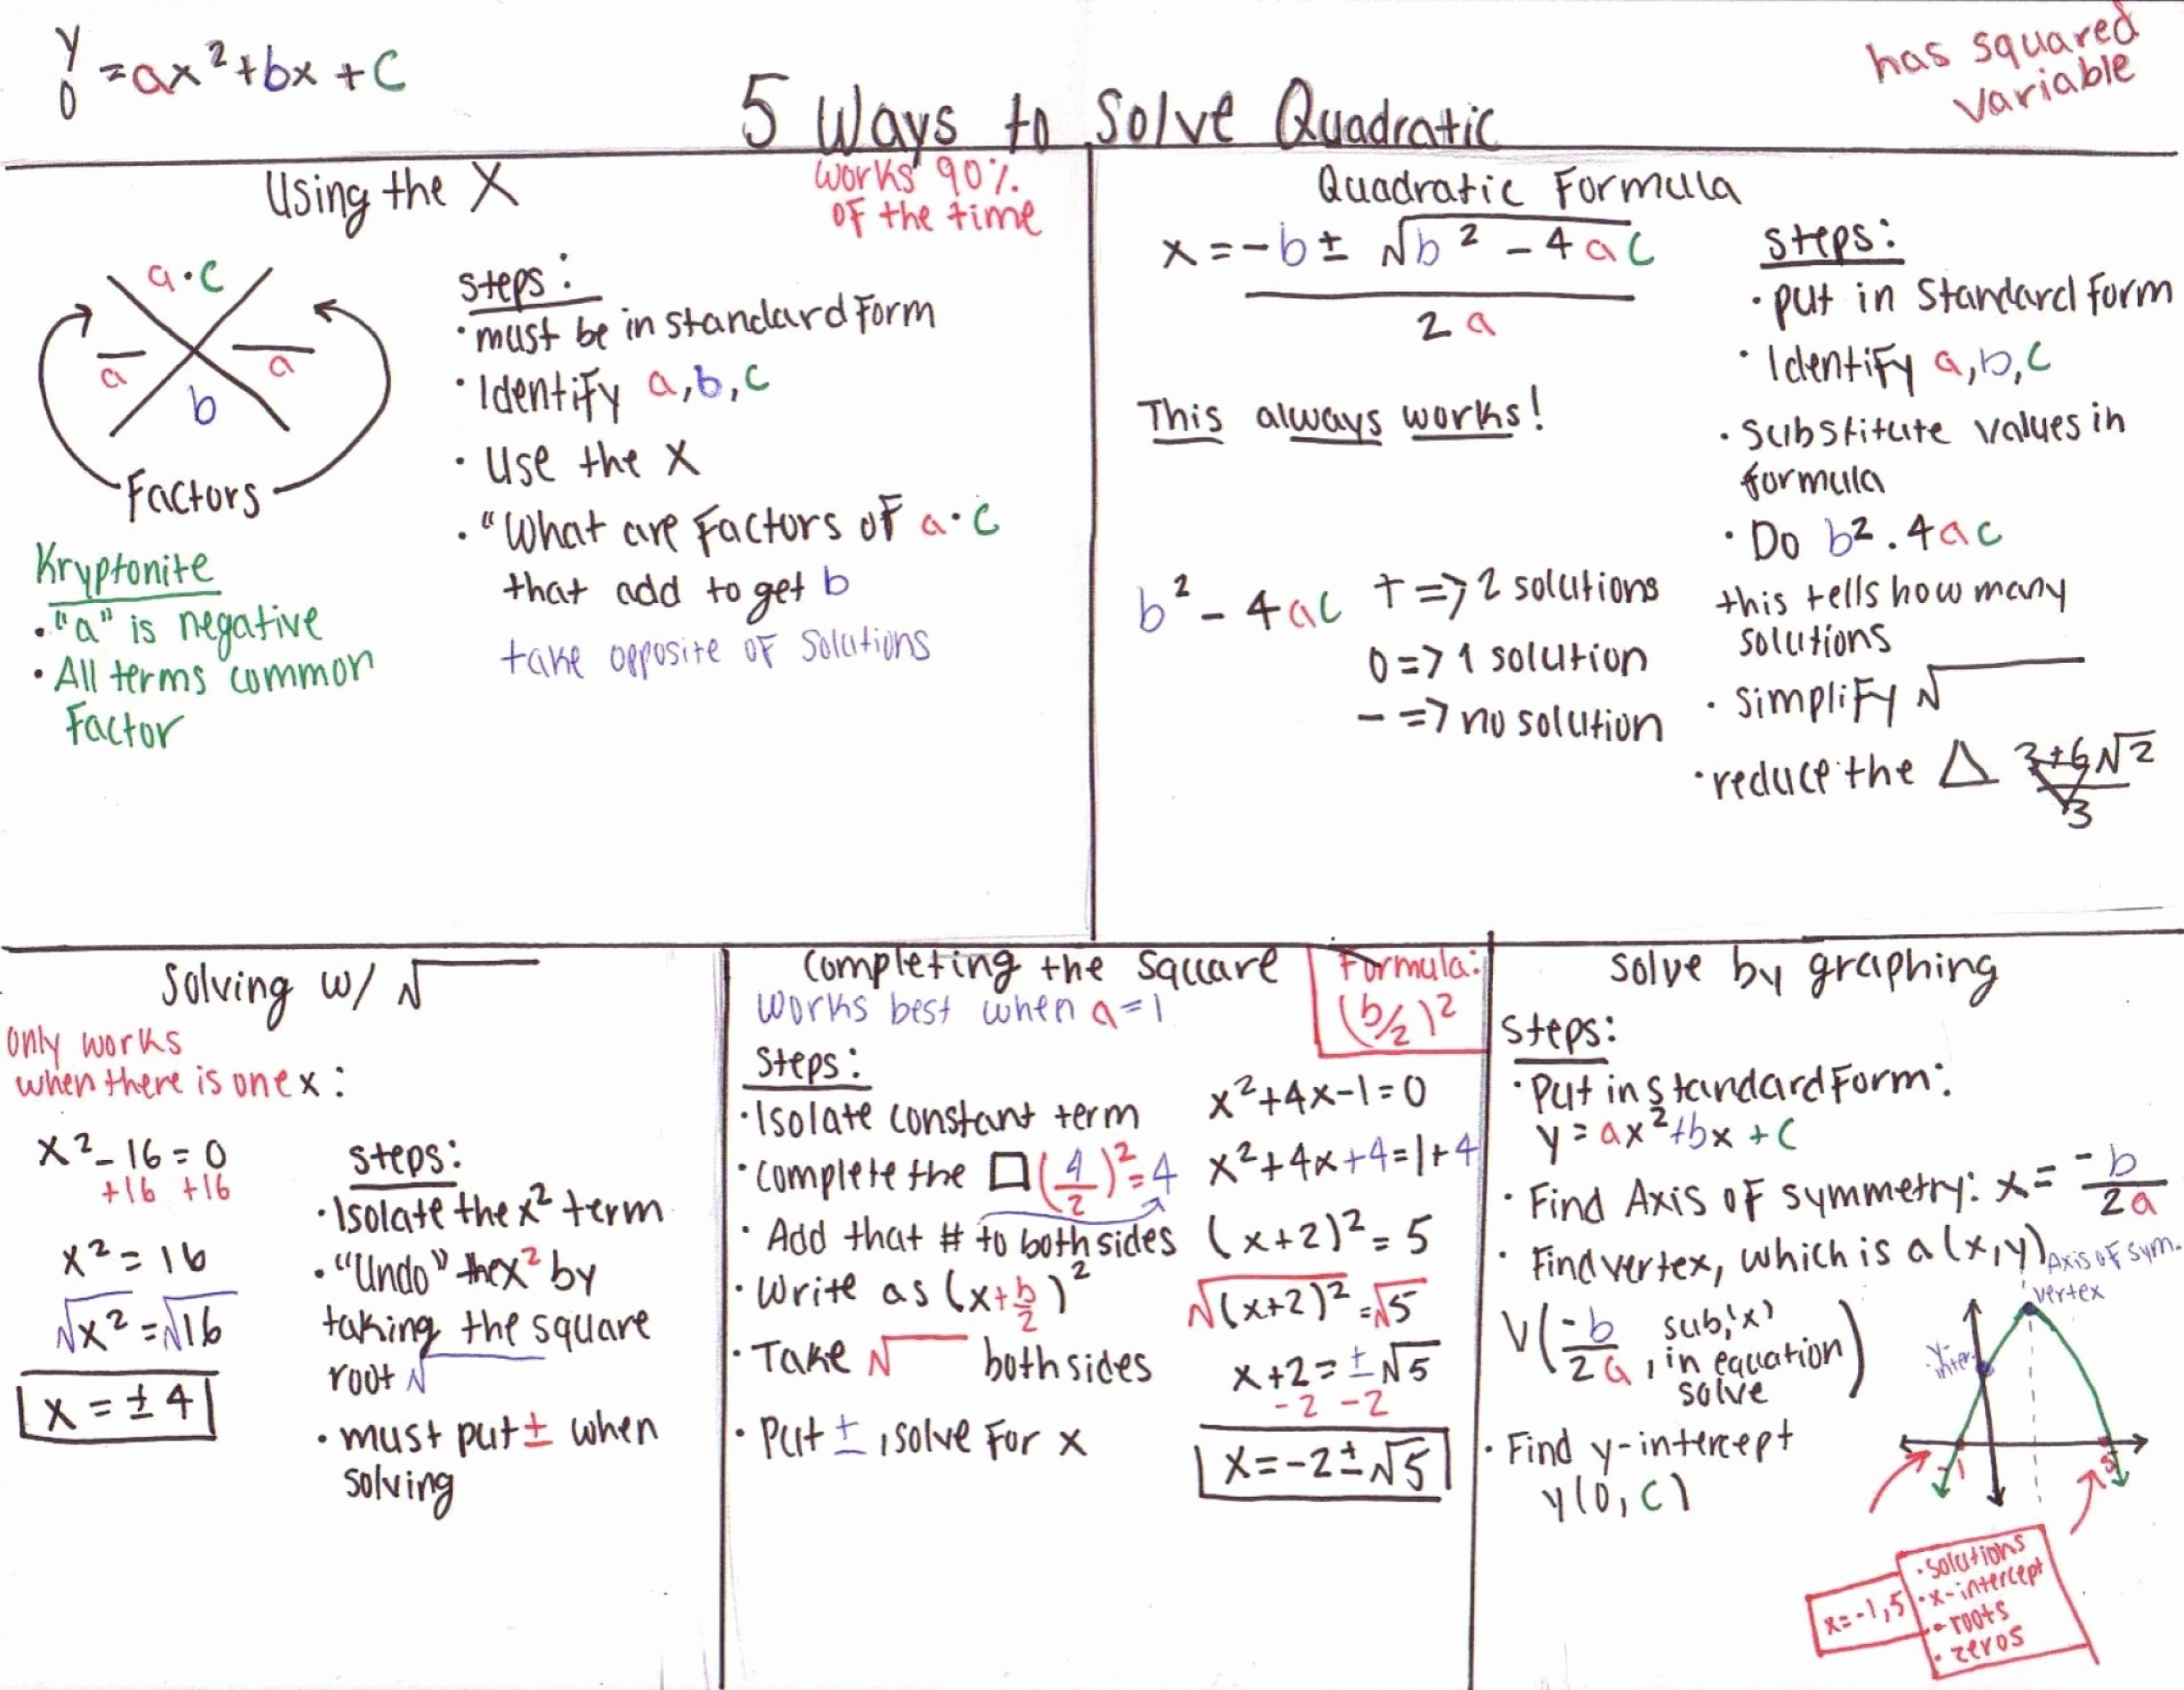 y
0 = ax² + bx + c
5 Ways to Solve Quadratic
has squared
variable
Using the X
works 90%
of the time
a·c
a
a
b
Factors
Kryptonite
· "a" is negative
· All terms common
Factor
steps:
· must be in standard Form
· Identify a, b, c
· Use the X
· "What are Factors of a·c
that add to get b
take opposite of solutions
Quadratic Formula
x = -b ± √b² - 4ac
2a
This always works!
b² - 4ac + => 2 solutions
0 => 1 solution
- => no solution
steps:
· put in standard form
· Identify a, b, c
· substitute values in
formula
· Do b² · 4ac
this tells how many
solutions
· simplify √
· reduce the △ 3+6√2
3
Solving w/ √
only works
when there is one x:
x² - 16 = 0
+16 +16
x² = 16
√x² = √16
x = ± 4
steps:
· Isolate the x² term
· "Undo" the x² by
taking the square
root √
· must put ± when
solving
Completing the Square
Works best when a = 1
Formula:
(b/2)²
Steps:
· Isolate constant term
· complete the □ (4/2)² = 4
· Add that # to both sides
· Write as (x + b/2)²
· Take √ both sides
· Put ±, solve For x
x² + 4x - 1 = 0
x² + 4x + 4 = 1 + 4
(x + 2)² = 5
√(x+2)² = √5
x + 2 = ± √5
-2 -2
x = -2 ± √5
Solve by graphing
Steps:
· Put in Standard Form:
y = ax² + bx + c
· Find Axis of symmetry: x = -b/2a
· Find vertex, which is a (x, y)
Axis of Sym.
vertex
V(-b/2a, sub, 'x'
in equation
solve)
y-
inter.
· Find y-intercept
y(0, c)
-1
5
x = -1, 5
· solutions
· x-intercept
· roots
· zeros